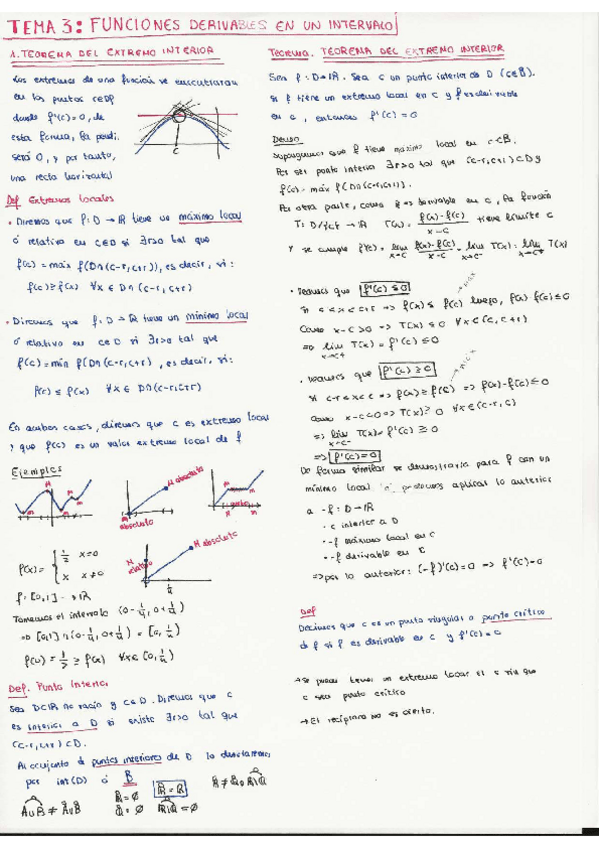 TEMA 3: FUNCIONES DERIVABLES EN UN INTERVALO
1. TEOREMA DEL EXTREMO INTERIOR
Los extremos de una función se encuentran
en los puntos
donde f'(c)=0, de
esta forma, la
será 0, y por tanto,
una recta horizontal
C
Def Extremos locales
• Diremos que f: D → ℝ tiene un máximo local
ó relativo en c∈D si ∃r>0 tal que
f(c) = máx f(D∩(c-r,c+r)), es decir, si:
f(c) ≥ f(x) ∀x ∈ D∩(c-r,c+r)
• Diremos que f: D → ℝ tiene un mínimo local
ó relativo en c∈D si ∃r>0 tal que
f(c) = mín f(D∩(c-r,c+r)), es decir, si:
f(c) ≤ f(x) ∀x ∈ D∩(c-r,c+r)
En ambos casos, diremos que c es extremo local
y que f(c) es un valor extremo local de f
Ejemplos
M absoluto
absoluto
M absoluto
M relativo
f(x) = { 1/2 x=0
x x≠0
f: [0,1] → ℝ
Tomemos el intervalo (0-1/4, 0+1/4)
⇒ [0,1]∩(0-1/4, 0+1/4) = [0, 1/4)
f(0) = 1/2 ≥ f(x) ∀x∈[0,1/4)
Def. Punto Interior
Sea D⊂ℝ no vacío y c∈D. Diremos que c
es interior a D si existe ∃r>0 tal que
(c-r,c+r)⊂D.
Al conjunto de puntos interiores de D lo denotaremos
por int(D) ó
A∪B ≠ A∪B
Teorema. TEOREMA DEL EXTREMO INTERIOR
Sea f: D→ℝ. Sea c un punto interior de D
si f tiene un extremo local en c y f es derivable
en c, entonces f'(c) = 0
Demos
Supongamos que f tiene máximo local en
Por ser punto interior ∃r>0 tal que (c-r,c+r)⊂D y
f(c) = máx f(D∩(c-r,c+r)).
Por otra parte, como f es derivable en c, la función
T: D/{c} → ℝ T(x) = f(x)-f(c) / x-c tiene límite c
Y se cumple f'(c) = lim x→c f(x)-f(c) / x-c = lim x→c+ T(x) = lim x→c- T(x)
• Veamos que f'(c) ≤ 0
si c<x<c+r ⇒ f(x) ≤ f(c) luego, f(x)-f(c) ≤ 0
Como x-c>0 ⇒ T(x) ≤ 0 ∀x∈(c, c+r)
⇒ lim x→c+ T(x) = f'(c) ≤ 0
• Veamos que f'(c) ≥ 0
si c-r<x<c ⇒ f(x) ≤ f(c) ⇒ f(x)-f(c) ≤ 0
Como x-c<0 ⇒ T(x) ≥ 0 ∀x∈(c-r, c)
⇒ lim x→c- T(x) = f'(c) ≥ 0
⇒ f'(c) = 0
De forma similar se demostraría para f con un
mínimo local podemos aplicar lo anterior
a -f: D→ℝ
• c interior a D
• -f máximo local en c
• -f derivable en c
⇒ por lo anterior: (-f)'(c) = 0 ⇒ f'(c) = 0
Def
Decimos que c es un punto singular o punto crítico
de f si f es derivable en c y f'(c) = 0
→ Se puede tener un extremo local en c sin que
c sea punto crítico
→ El recíproco no es cierto.